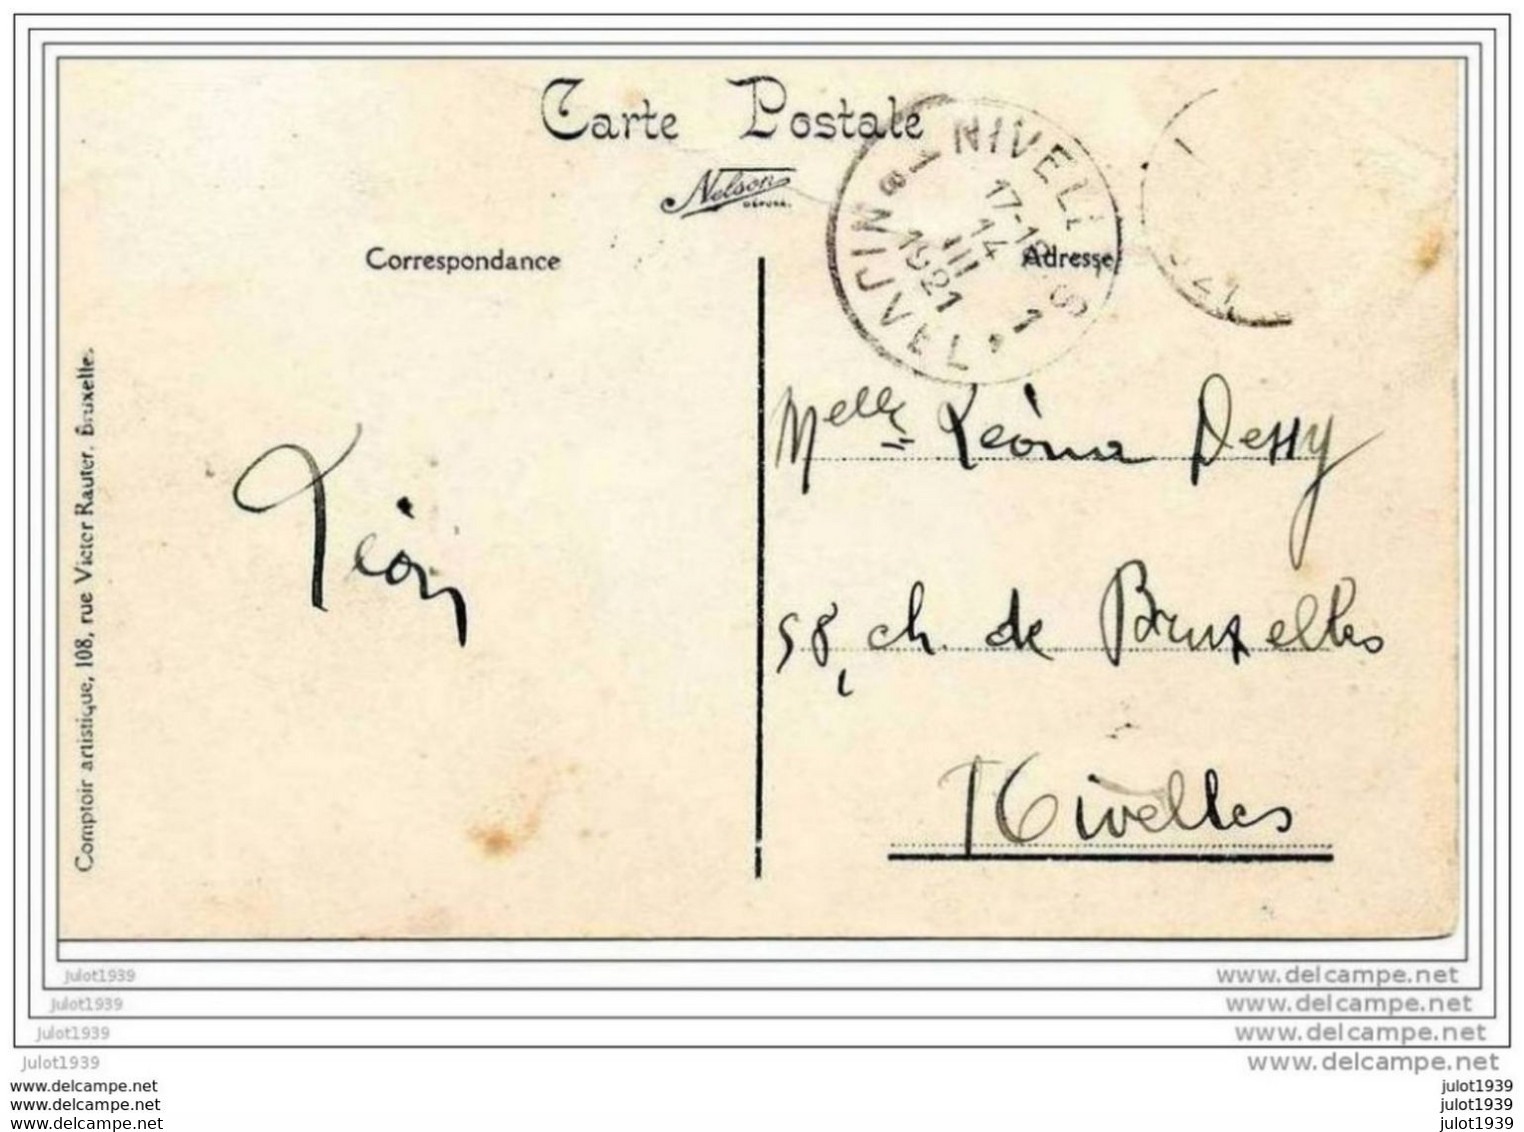 Carte Postale
Nelson
DÉPOSÉ.
NIVELLES
17-18
14
III
1921
NIJVEL
1
1
Correspondance
Adresse
Comptoir artistique, 108, rue Victor Rauter, Bruxelles.
Léon
Melle Léona Dessy
58, ch. de Bruxelles
Nivelles
julot1939 www.delcampe.net
julot1939 www.delcampe.net
julot1939 www.delcampe.net
julot1939 www.delcampe.net
www.delcampe.net julot1939
www.delcampe.net julot1939
www.delcampe.net julot1939